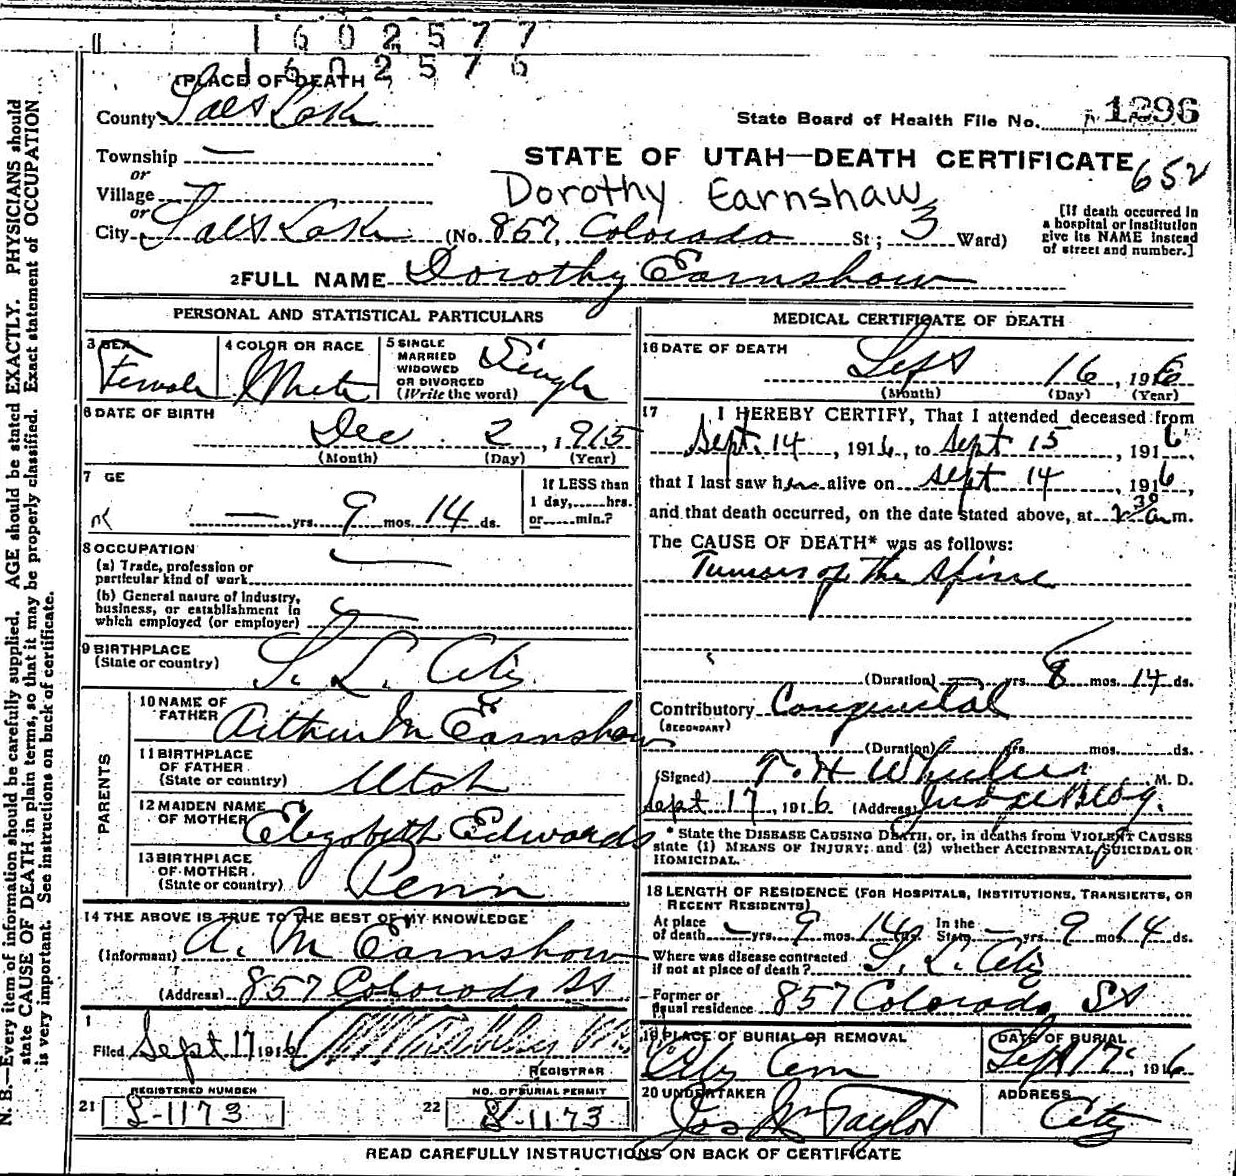 1602577
1602576
PLACE OF DEATH
County Salt Lake
State Board of Health File No. 1296
Township —
or
Village
or
STATE OF UTAH—DEATH CERTIFICATE
652
Dorothy Earnshaw
City Salt Lake (No. 857, Colorado St; 3 Ward)
[If death occurred in
a hospital or institution
give its NAME instead
of street and number.]
2 FULL NAME Dorothy Earnshaw
PERSONAL AND STATISTICAL PARTICULARS
3 SEX
Female
4 COLOR OR RACE
White
5 SINGLE
MARRIED
WIDOWED
OR DIVORCED
(Write the word)
Single
6 DATE OF BIRTH
Dec 2, 1915
(Month) (Day) (Year)
7 GE
— yrs. 9 mos. 14 ds.
If LESS than
1 day, hrs.
or min.?
8 OCCUPATION
(a) Trade, profession or
particular kind of work
(b) General nature of industry,
business, or establishment in
which employed (or employer)
9 BIRTHPLACE
(State or country)
S. L. City
PARENTS
10 NAME OF
FATHER
Arthur M Earnshaw
11 BIRTHPLACE
OF FATHER
(State or country)
Utah
12 MAIDEN NAME
OF MOTHER
Elizabeth Edwards
13 BIRTHPLACE
OF MOTHER
(State or country)
Penn
14 THE ABOVE IS TRUE TO THE BEST OF MY KNOWLEDGE
(Informant) A. M Earnshaw
(Address) 857 Colorado St
1
Filed Sept 17 1916
REGISTRAR
21
REGISTERED NUMBER
S-1173
22
NO. OF BURIAL PERMIT
S-1173
MEDICAL CERTIFICATE OF DEATH
16 DATE OF DEATH
Sept 16, 1916
(Month) (Day) (Year)
17 I HEREBY CERTIFY, That I attended deceased from
Sept. 14, 1916, to Sept 15, 1916,
that I last saw her alive on Sept 14, 1916,
and that death occurred, on the date stated above, at 2 30 a m.
The CAUSE OF DEATH* was as follows:
Tumor of the Spine
(Duration) yrs. 8 mos. 14 ds.
Contributory Congenital
(SECONDARY)
(Duration) yrs. mos. ds.
(Signed) T. H Wheeler M. D.
Sept 17, 1916 (Address) Judge Bldg.
* State the DISEASE CAUSING DEATH, or, in deaths from VIOLENT CAUSES
state (1) MEANS OF INJURY; and (2) whether ACCIDENTAL, SUICIDAL OR
HOMICIDAL.
18 LENGTH OF RESIDENCE (FOR HOSPITALS, INSTITUTIONS, TRANSIENTS, OR
RECENT RESIDENTS)
At place
of death — yrs. 9 mos. 14 ds.
In the
State — yrs. 9 mos 14 ds.
Where was disease contracted
if not at place of death? S. L. City
Former or
usual residence 857 Colorado St
19 PLACE OF BURIAL OR REMOVAL
City Cem
DATE OF BURIAL
Sept 17, 1916
20 UNDERTAKER
Jos Wm Taylor
ADDRESS
City
READ CAREFULLY INSTRUCTIONS ON BACK OF CERTIFICATE
N. B.—Every item of information should be carefully supplied. AGE should be stated EXACTLY. PHYSICIANS should
state CAUSE OF DEATH in plain terms, so that it may be properly classified. Exact statement of OCCUPATION
is very important. See instructions on back of certificate.